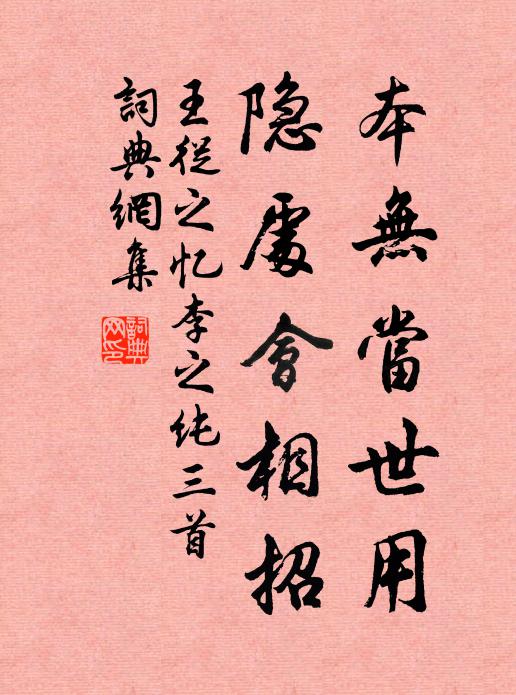 本無當世用
隐處會相招
王從之忆李之纯三首
詞典網集
詞典網印